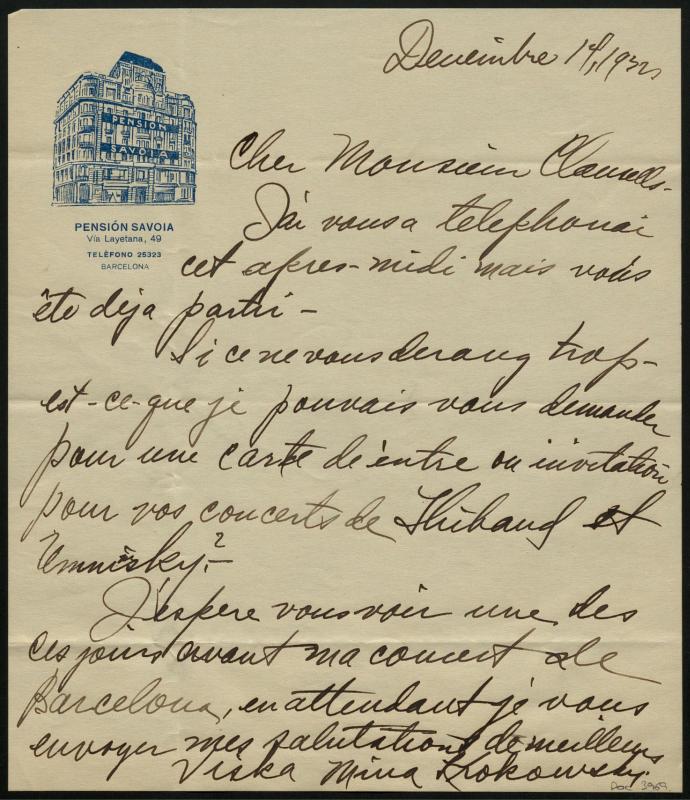 Decembre 14, 1932
PENSIÓN
SAVOIA
PENSIÓN SAVOIA
Vía Layetana, 49
TELÉFONO 25323
BARCELONA
Cher Monsieur Clausells-
J'ai vousa telephonai
cet apres-midi mais vous
ête deja partri-
Si ce ne vous derang trop-
est-ce-que je pouvais vous demander
pour une carte de entre ou invitation
pour vos concerts de Thibaud et
J'espere vous voir une des
ces jours avant ma concert de
Barcelona, en attendant je vous
envoyer mes salutations de meilleurs
Viska Mina Krokowsky.
Doc 3969